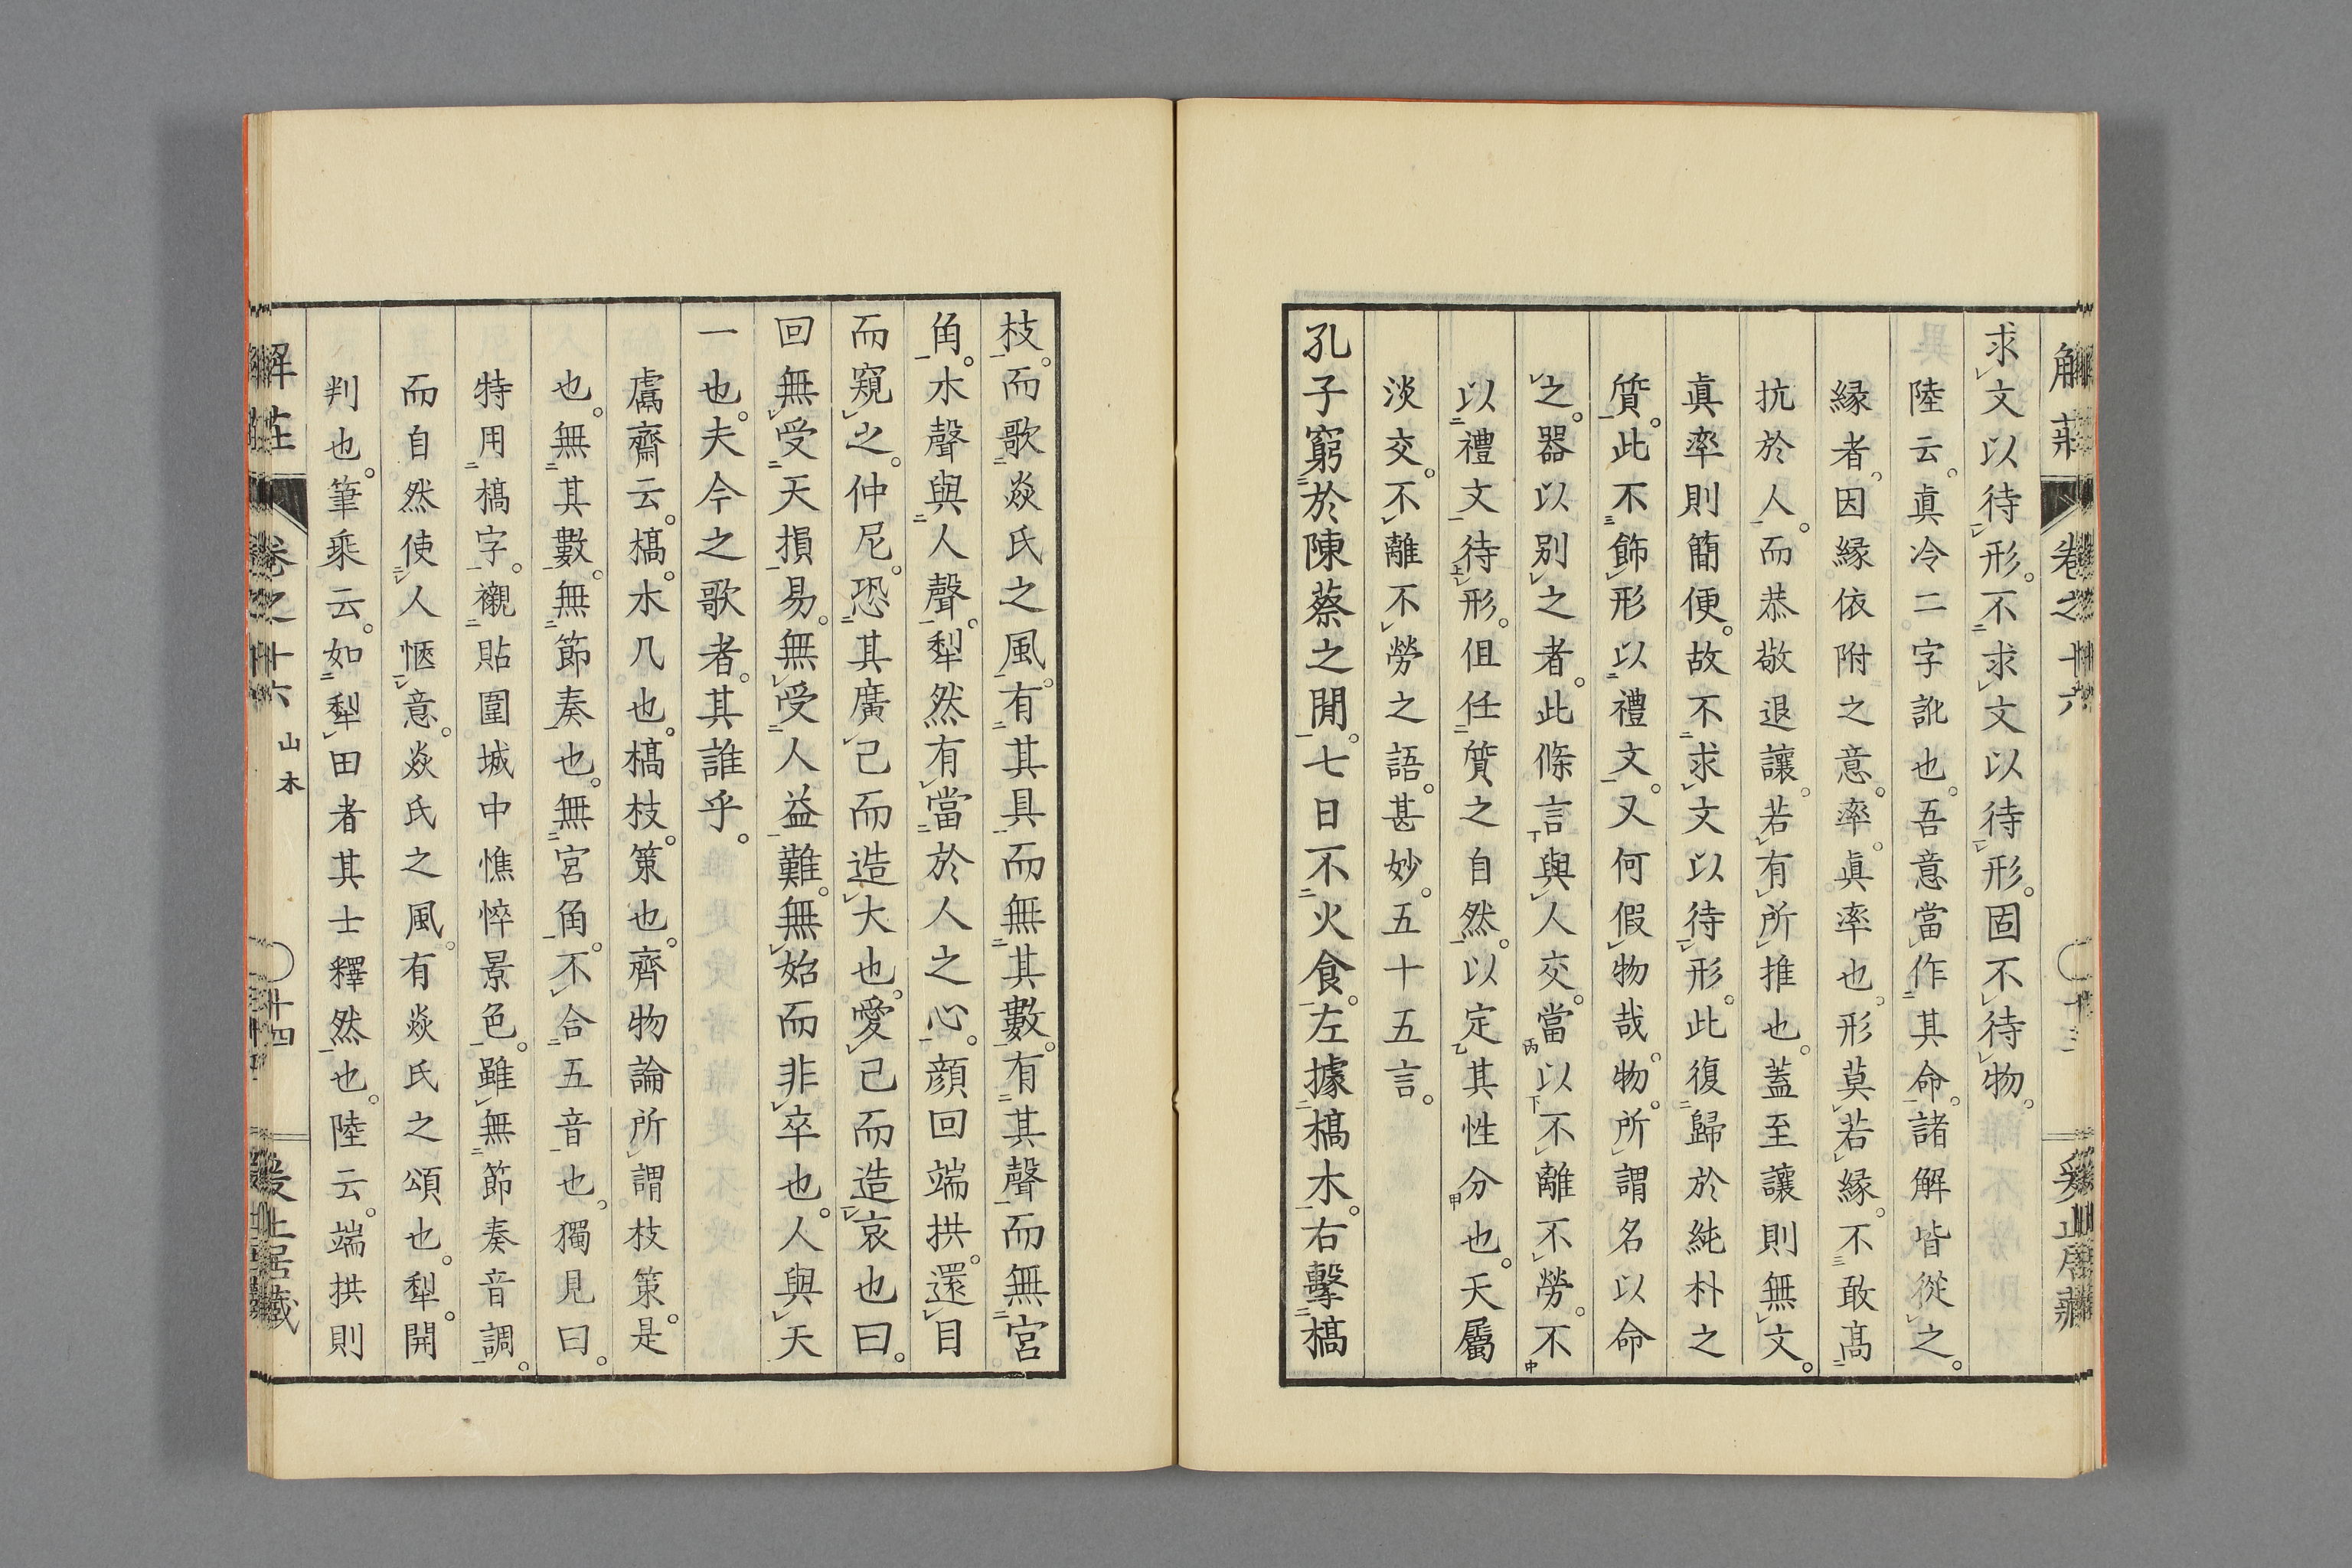 求文以待形。不求文以待形。固不待物。
陸云。眞冷二字訛也。吾意當作其命。諸解皆從之。
縁者。因縁依附之意。率。眞率也。形莫若縁。不敢高
抗於人。而恭敬退讓。若有所推也。蓋至讓則無文。
眞率則簡便。故不求文以待形。此復歸於純朴之
質。此不飾形以禮文。又何假物哉。物。所謂名以命
之。器以別之者。此條言與人交。當以不離不勞。不
以禮文待形。但任質之自然。以定其性分也。天屬
淡交。不離不勞之語。甚妙。五十五言。
孔子窮於陳蔡之閒。七日不火食。左據槁木。右擊槁
枝。而歌焱氏之風。有其具而無其數。有其聲而無宮
角。木聲與人聲。犁然有當於人之心。顏回端拱。還目
而窺之。仲尼。恐其廣己而造大也。愛己而造哀也曰。
回無受天損易。無受人益難。無始而非卒也。人與天
一也。夫今之歌者。其誰乎。
鬳齋云。槁。木几也。槁枝。策也。齊物論所謂枝策。是
也。無其數。無節奏也。無宮角。不合五音也。獨見曰。
特用槁字。襯貼圍城中憔悴景色。雖無節奏音調。
而自然使人愜意。焱氏之風。有焱氏之頌也。犁。開
判也。筆乘云。如犁田者其土釋然也。陸云。端拱則
解莊
卷之十六
山木
十四